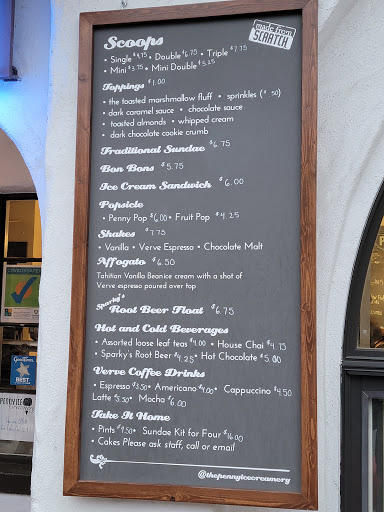 made from
SCRATCH
Scoops
• Single $4.75 • Double $6.75 • Triple $7.75
• Mini $3.75 • Mini Double $5.25
Toppings $1.00
• the toasted marshmallow fluff • sprinkles ($.50)
• dark caramel sauce • chocolate sauce
• toasted almonds • whipped cream
• dark chocolate cookie crumb
Traditional Sundae $6.75
Bon Bons $5.75
Ice Cream Sandwich $6.00
Popsicle
• Penny Pop $6.00 • Fruit Pop $4.25
Shakes $7.75
• Vanilla • Verve Espresso • Chocolate Malt
Affogato $6.50
Tahitian Vanilla Beanice cream with a shot of
Verve espresso poured over top
Sparky's
Root Beer Float $6.75
Hot and Cold Beverages
• Assorted loose leaf teas $4.00 • House Chai $4.75
• Sparky's Root Beer $4.25 • Hot Chocolate $5.00
Verve Coffee Drinks
• Espresso $3.50 • Americano $4.00 • Cappuccino $4.50
Latte $5.50 • Mocha $6.00
Take It Home
• Pints $9.50 • Sundae Kit for Four $36.00
• Cakes Please ask staff, call or email
@thepennyicecreamery
GoodTimes
BEST
PENNY ICE